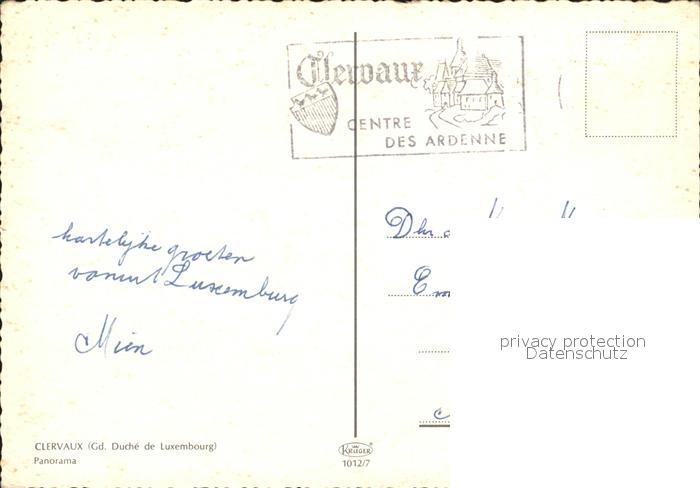 Clervaux
CENTRE
DES ARDENNE
hartelijke groeten
vanuit Luxemburg
Mien
Dhr
privacy protection
Datenschutz
CLERVAUX (Gd. Duché de Luxembourg)
Panorama
KRÜGER
1012/7